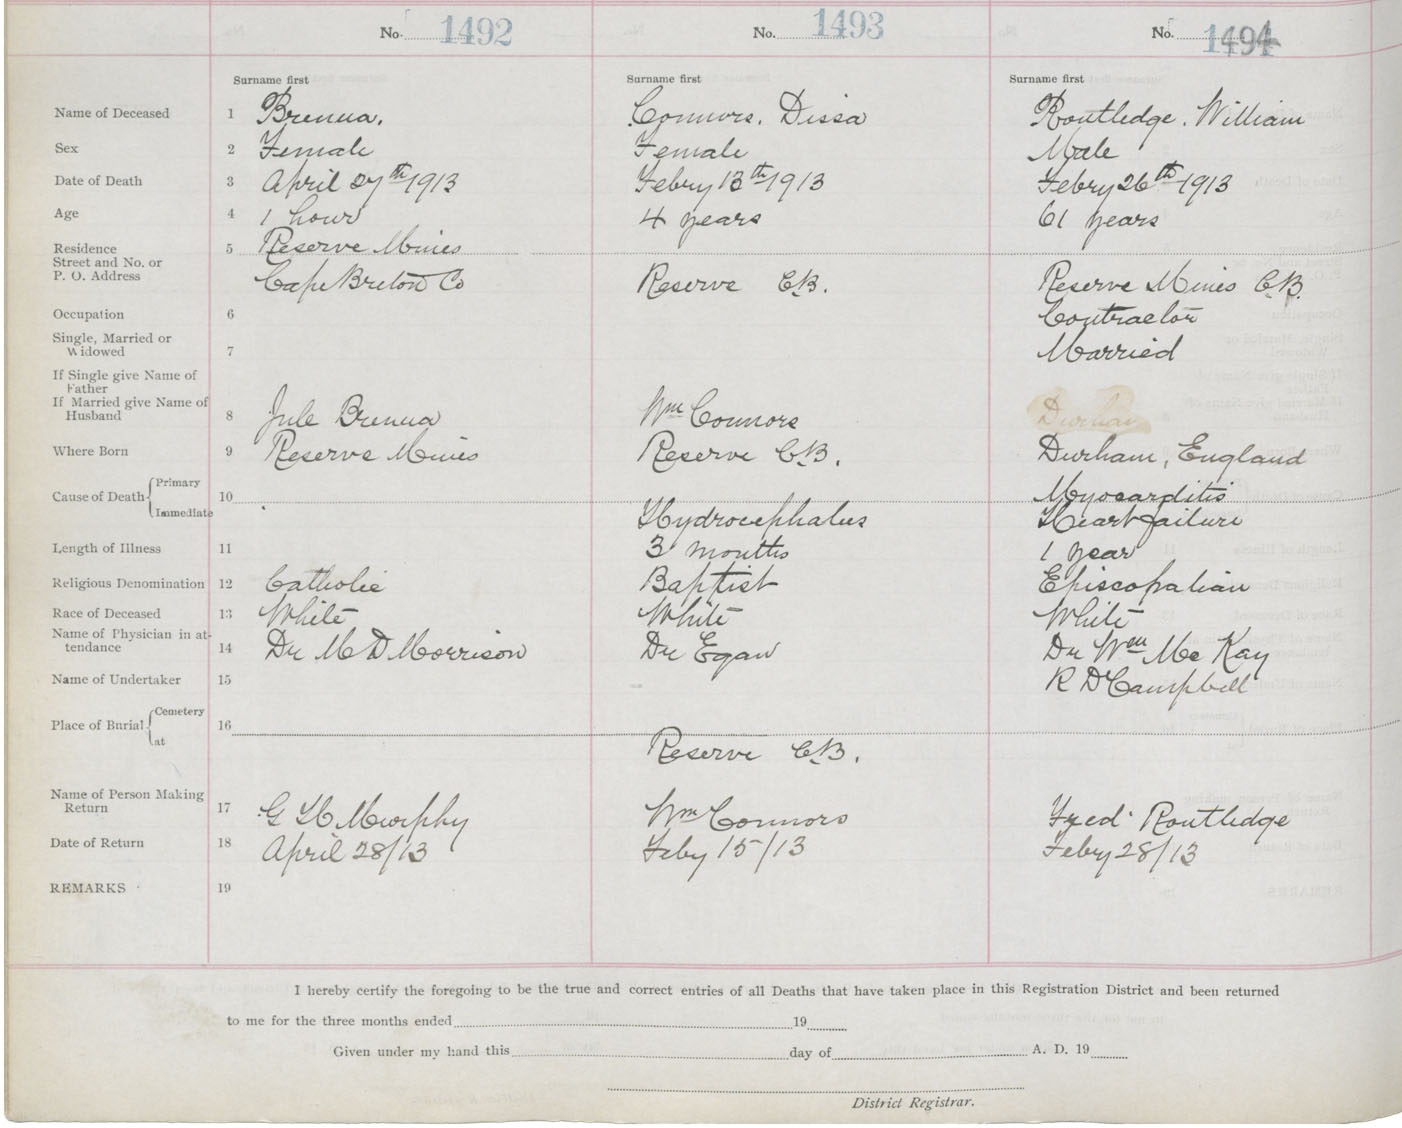 No. 1492
No. 1493
No. 1494
Surname first
Surname first
Surname first
Name of Deceased 1 Brenna. Connors. Dissa Routledge. William
Sex 2 Female Female Male
Date of Death 3 April 27th 1913 Febry 13th 1913 Febry 26th 1913
Age 4 1 hour 4 years 61 years
Residence 5 Reserve Mines
Street and No. or
P. O. Address Cape Breton Co Reserve C.B. Reserve Mines C.B.
Occupation 6 Contractor
Single, Married or
Widowed 7 Married
If Single give Name of
Father
If Married give Name of
Husband 8 Jule Brenna Wm Connors Durham
Where Born 9 Reserve Mines Reserve C.B. Durham, England
Cause of Death Primary 10 Myocarditis
Immediate Hydrocephalus Heart failure
Length of Illness 11 3 months 1 year
Religious Denomination 12 Catholic Baptist Episcopalian
Race of Deceased 13 White White White
Name of Physician in at-
tendance 14 Dr M D Morrison Dr Egan Dr Wm Mc Kay
Name of Undertaker 15 R D Campbell
Place of Burial Cemetery 16
at Reserve C.B.
Name of Person Making
Return 17 G H Murphy Wm Connors Fred Routledge
Date of Return 18 April 28/13 Feby 15/13 Febry 28/13
REMARKS 19
I hereby certify the foregoing to be the true and correct entries of all Deaths that have taken place in this Registration District and been returned
to me for the three months ended 19
Given under my hand this day of A. D. 19
District Registrar.